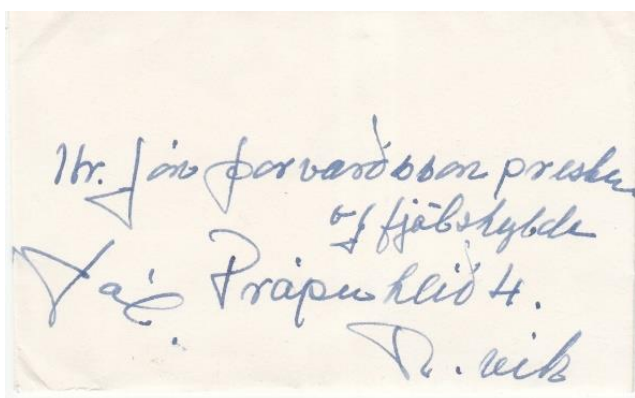 Hr. Jón Þorvarðsson prestur
og fjölskylda
Drápuhlíð 4.
R.vik